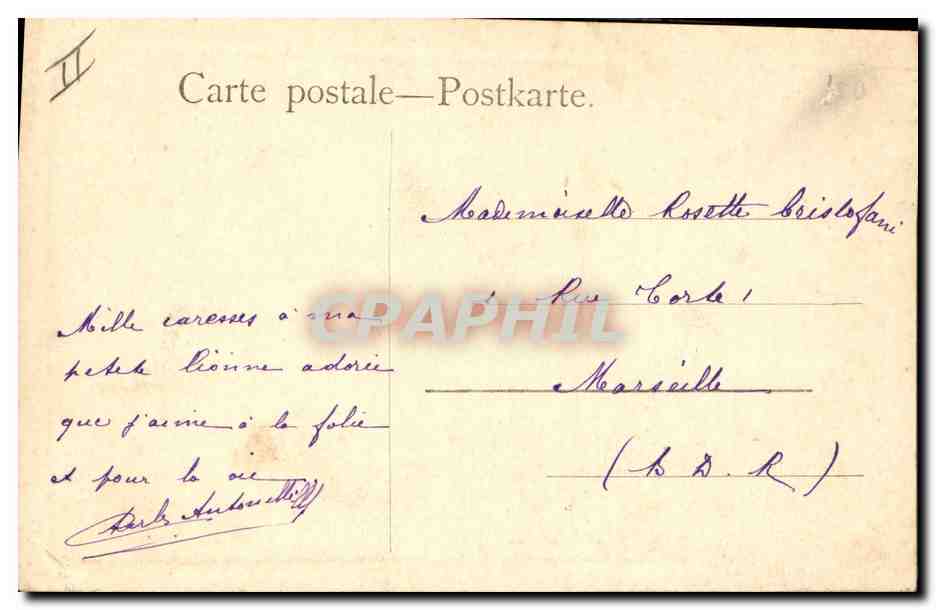 II
Carte postale—Postkarte.
Mademoiselle Rosette Cristofani
1 Rue Corte 1
Marseille
(B D. R)
Mille caresses à ma
petite lionne adorée
que j'aime à la folie
et pour la vie
Antonelli
CPAPHIL